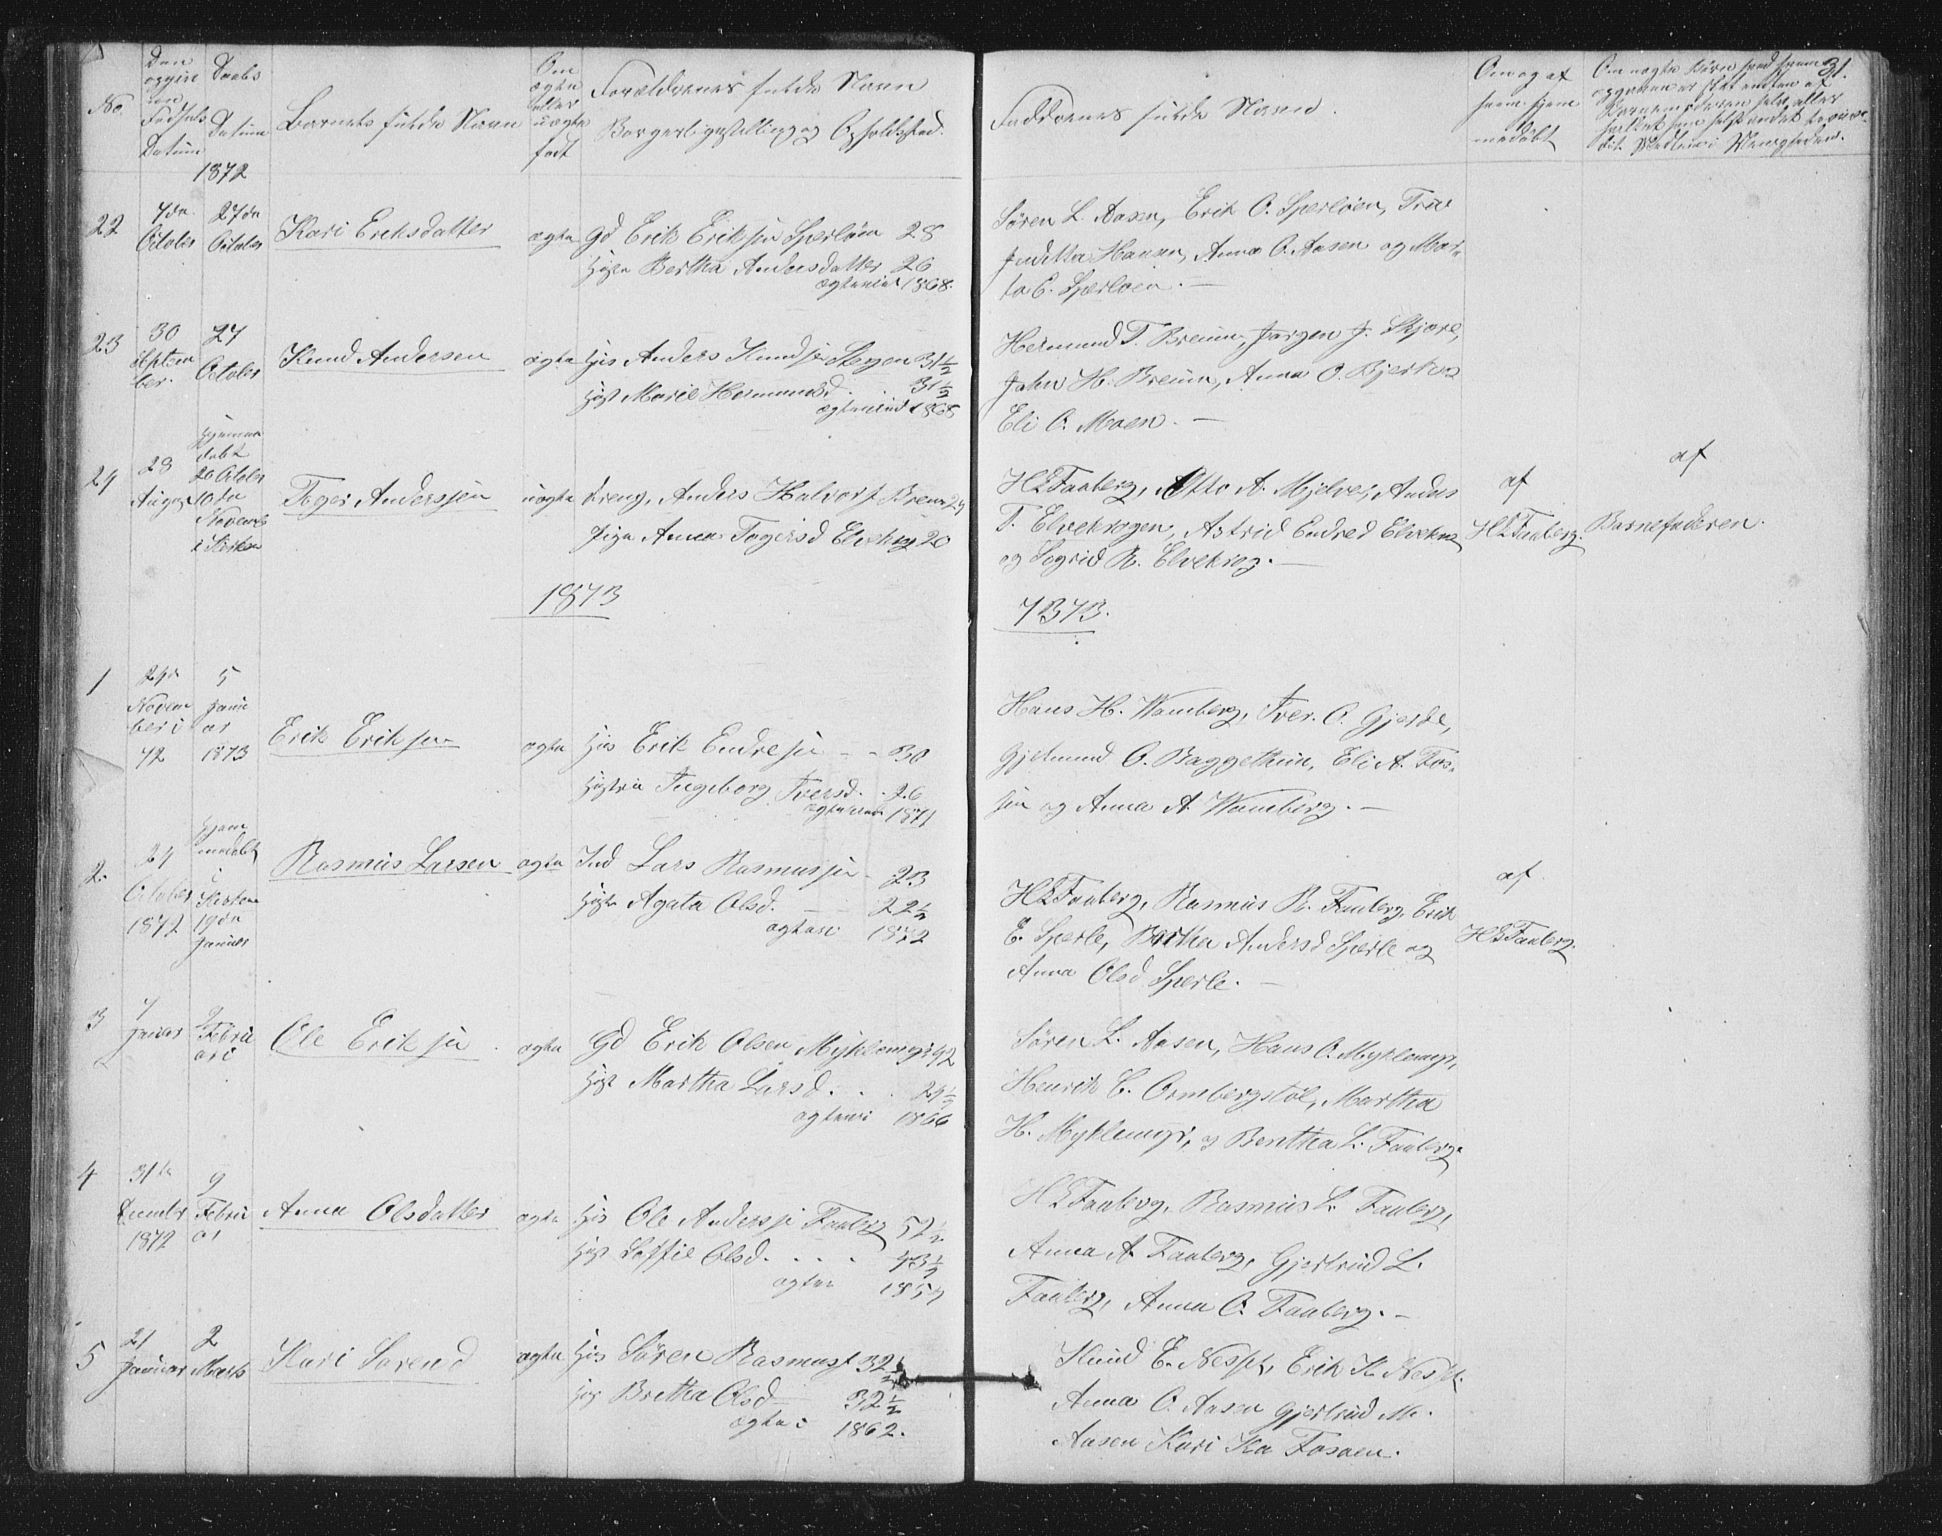 31.
No.
Den
opgivne
Fødsels
Datum
Daabs
Datum
1872
Barnets fulde Navn
Om
ægte
eller
uægte
født
Forældrenes fulde Navn
Borgerlige stilling og Opholdsted.
Faddernes fulde Navn.
Om og af
hvem hjem
medøbt
22
7de
October
27de
October
Kari Eriksdatter
ægte
Gd Erik Eriksen Sperløen 28
Hustru Bertha Andersdatter 26
ægteviet 1868.
Søren L. Aasen, Erik O. Sperløen,
Hansen, Anna O. Aasen og Mar-
ta E. Sperløen. —
23
30
Septem
ber.
27
October
Knud Andersen
ægte
Hus Anders Knudsen Skogen 31½
Hust Marie Hermundsd. 31½
ægteviet 1868
Hermund T. Breum, Jørgen J. Skjøre,
John H. Breum, Anna O. Bjerkva
Eli O. Moen. —
24
28
August
Hjemme
døbt
20 October
10de
Novemb
i Kirken
Toger Anderssen
uægte
Dreng, Anders Halvors. Brem 24
Pige Anna Togersd Elvekrog 20
H L Faaberg, Otto A. Mjelver, Anders
T. Elvekrogen, Astrid Endred Elvekrog
og Sigrid R. Elvekrog. —
af
H L Faaberg.
af
Barnefaderen.
1873
1873.
1
24de
Novem
ber i
72
5
Janu
ar
1873
Erik Eriksen
ægte
Hus Erik Endresen - - 30
Hustru Ingeborg Iversd. . 26
ægteviet 1871
Hans H. Wamberg, Iver. O. Gjerde,
Gjelmund O. Baggethun, Eli A. Fos-
sen og Anna A. Wamberg. —
2.
24
October
1872
Hjem
medøbt
i
Kirken
19de
Januar
Rasmus Larsen
ægte
Ind Lars Rasmussen - 23
Hustr Agata Olsd. — 22½
ægtevi 1872
H L Faaberg, Rasmus R. Faaberg, Erik
E. Sperle, Bertha Andersd Sperle og
Anna Olsd Sperle. —
af
H L Faaberg.
3
7
Januar
9
Febru
ari
Ole Eriksen
ægte
Gd Erik Olsen Myklemyr 42
Hust Martha Larsd. . . 29½
ægtevi 1866
Søren L. Aasen, Hans O. Myklemyr,
Henrik C. Ormbergstøl, Martha
H. Myklemyr, og Benthea L. Faaberg.
4
31te
December
1872
9
Febru
ar
Anna Olsdatter
ægte
Hus Ole Anderssen Faaberg 52½
Hust Soffie Olsd. . . . . 43½
ægtev 1854
H L Faaberg, Rasmus L. Faaberg,
Anna A. Faaberg, Gjertrud L.
Faaberg, Anna O. Faaberg. —
5
21
Januar
2
Marts
Kari Sørend
ægte
Hus Søren Rasmus. 32½
Hus Bretha Olsd — 32½
ægtevi 1862.
Knud E. Ness., Erik K. Ness.
Anna O. Aasen Gjertrud M.
Aasen Kari Kn Fosøen.